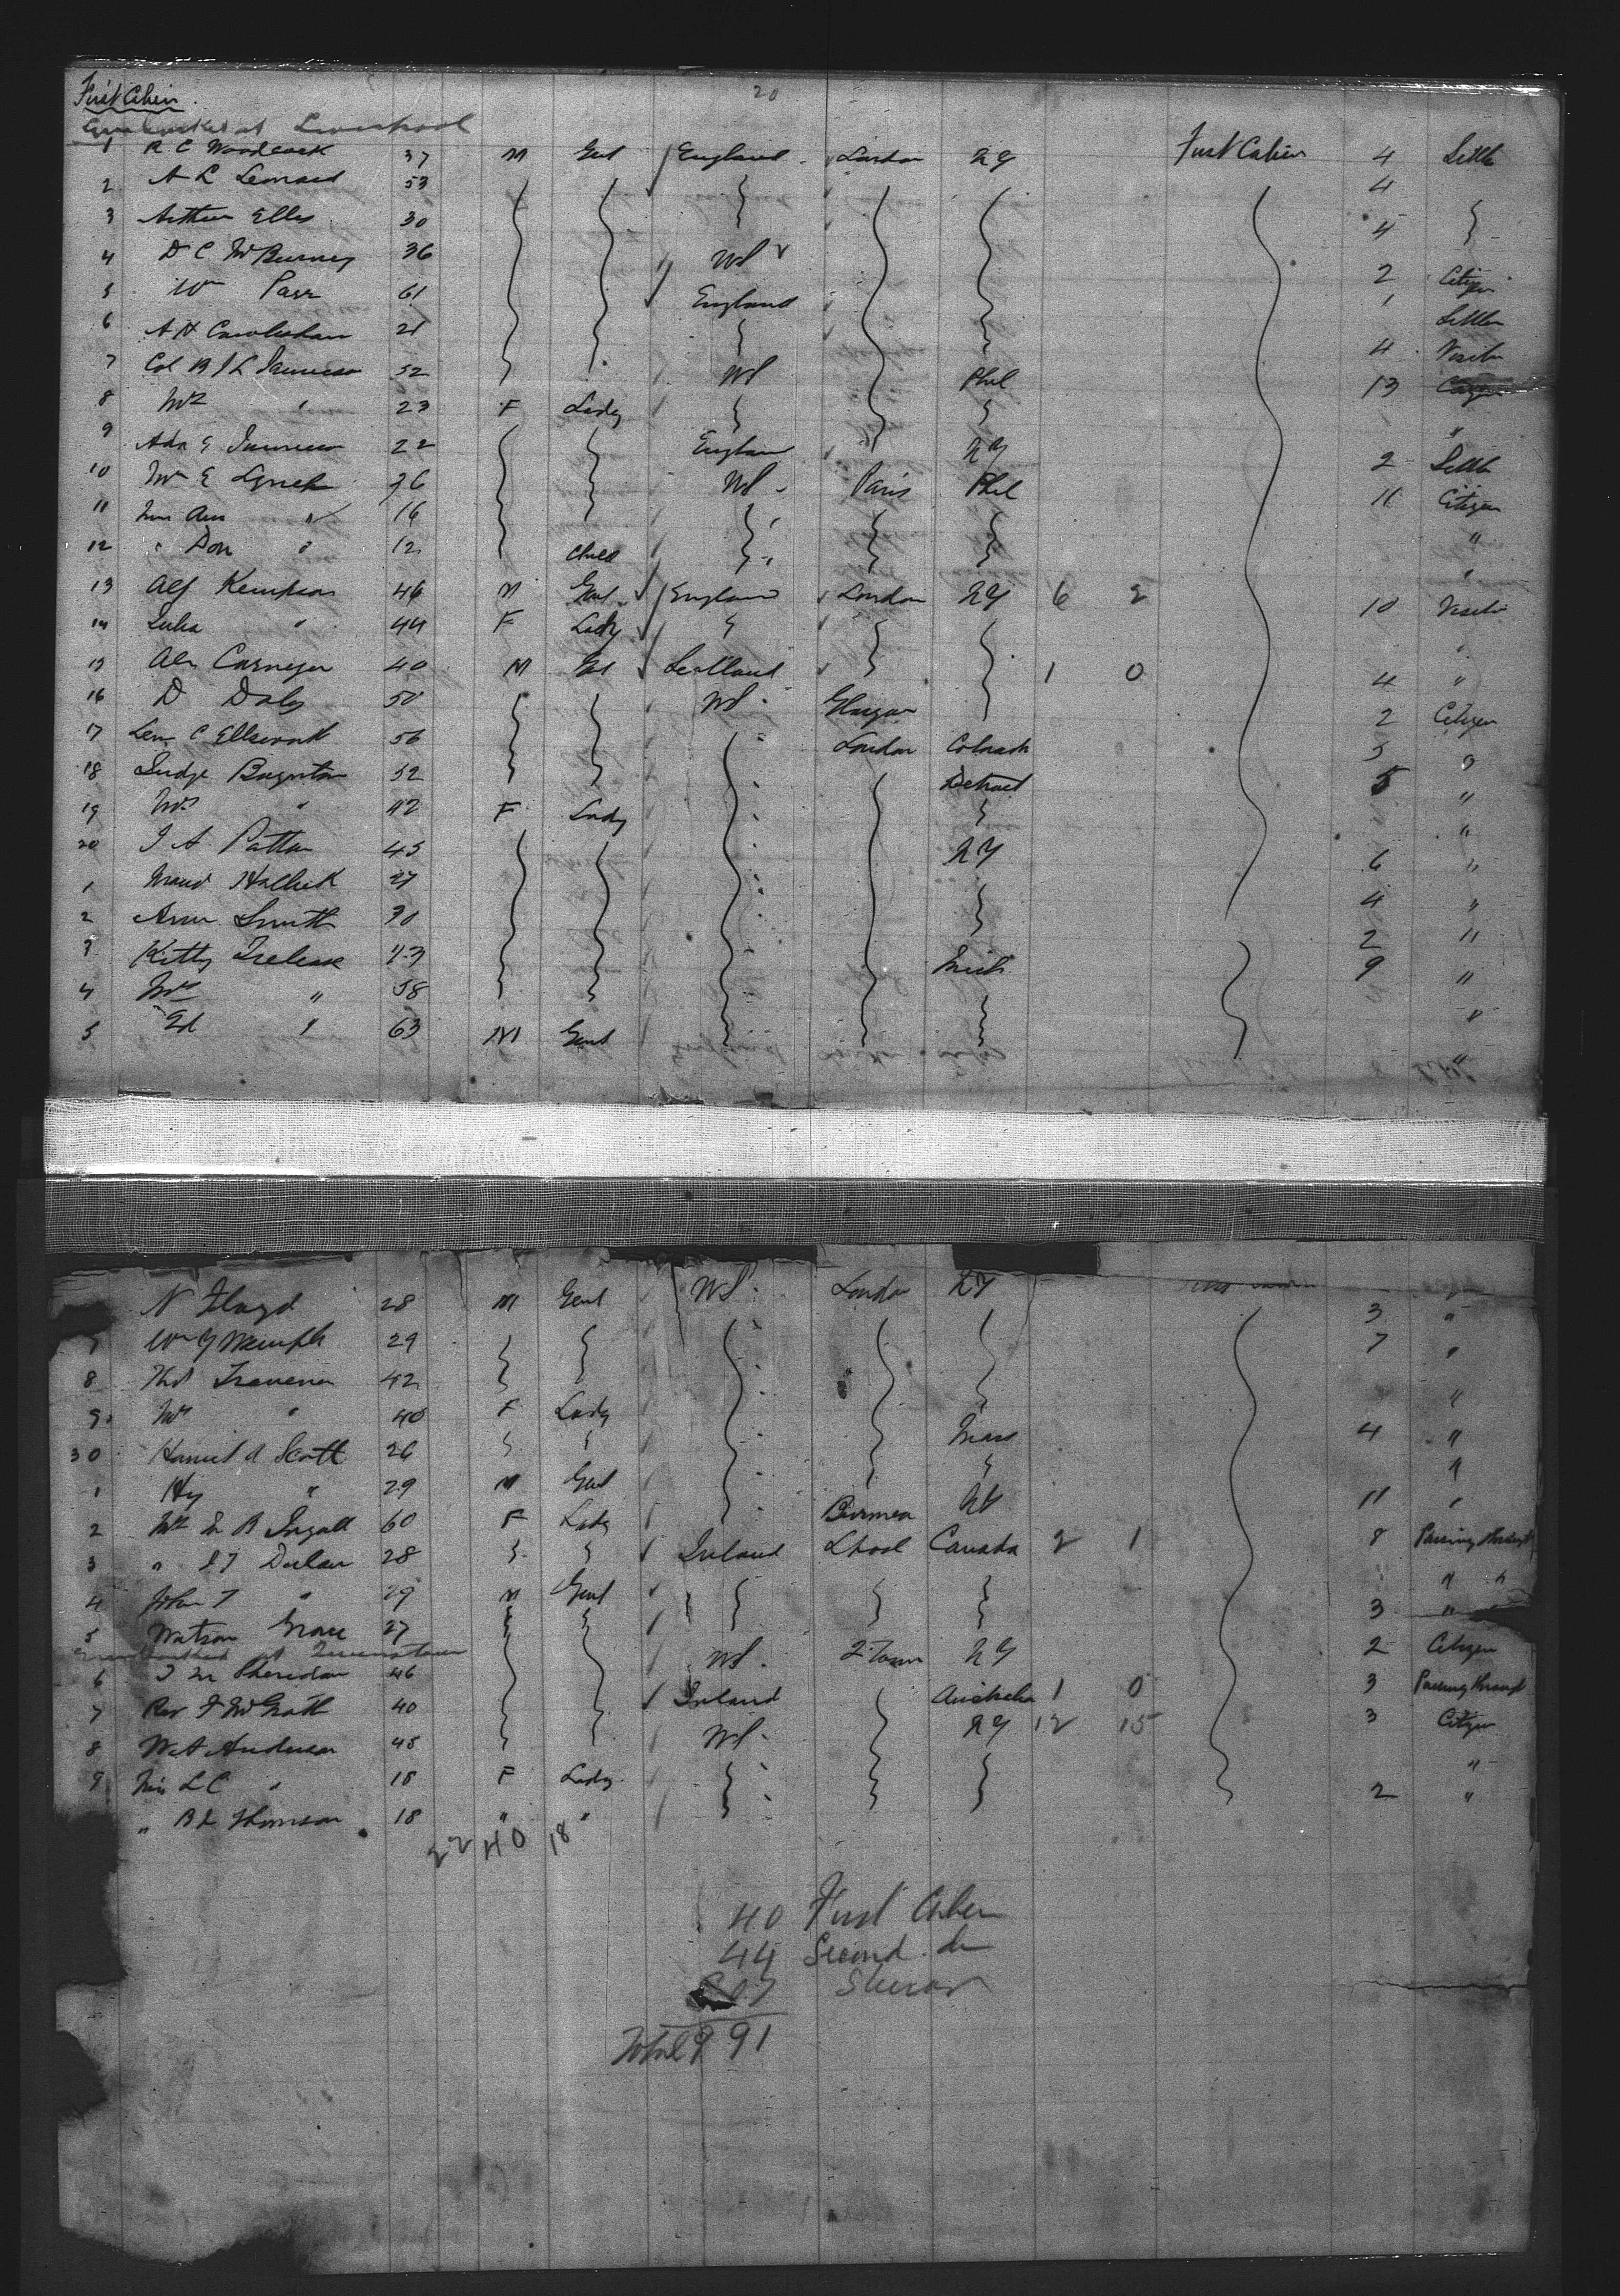 First Cabin. 20
Embarked at Liverpool
1 R C Woodcock 37 M Gent England London NY First Cabin 4 Settle
2 A L Leonard 53 4
3 Arthur Ellis 30 4
4 D C McBurney 36 US 2 Citizen
5 Wm Parr 61 England 1 Settler
6 A H 21 4 Visitor
7 Col B J L 52 US Phil 13
8 Mrs " 23 F Lady "
9 Ada E 22 England NY 2 Settle
10 Mr E Lynch 36 US Paris Phil 11 Citizen
11 Miss Ann " 16 "
12 " Don " 12 child "
13 Alf Kempson 46 M Gent England London NY 6 2 10 Visitor
14 Julia " 44 F Lady "
15 Alex 40 M Gent Scotland 1 0 4 "
16 D Daly 50 US Glasgow 2 Citizen
17 Len C Ellsworth 56 London Colorado 5 "
18 Judge Boynton 52 Detroit 5 "
19 Mrs " 42 F Lady "
20 J A Patton 45 NY 6 "
1 Maud 27 4 "
2 Ann Smith 30 2 "
3 Kitty 43 Mich 9 "
4 Mrs " 58 "
5 Ed " 63 M Gent "
N Floyd 28 M Gent US London NY 3 "
7 Wm 29 7 "
8 Thos 42 "
9 Mrs " 40 F Lady "
30 Harriet A Scott 26 Mass 4 "
1 Hy " 29 M Gent "
2 Mrs M B Ingall 60 F Lady Burmea NY 11 "
3 " 28 Ireland Lpool Canada 2 1 8 Passing through
4 John T " 29 M Gent " "
5 Watson Grace 27 3 "
Embarked at Queenstown
6 J M Sheridan 46 US QTown NY 2 Citizen
7 Rev McGrath 40 Ireland Australia 1 0 3 Passing through
8 W A Anderson 48 US NY 12 15 3 Citizen
9 Miss L C " 18 F Lady "
" B L Thomson 18 " " 2 "
22 40 18
40 First Cabin
44 Second do
07 Steerage
Total 9 91